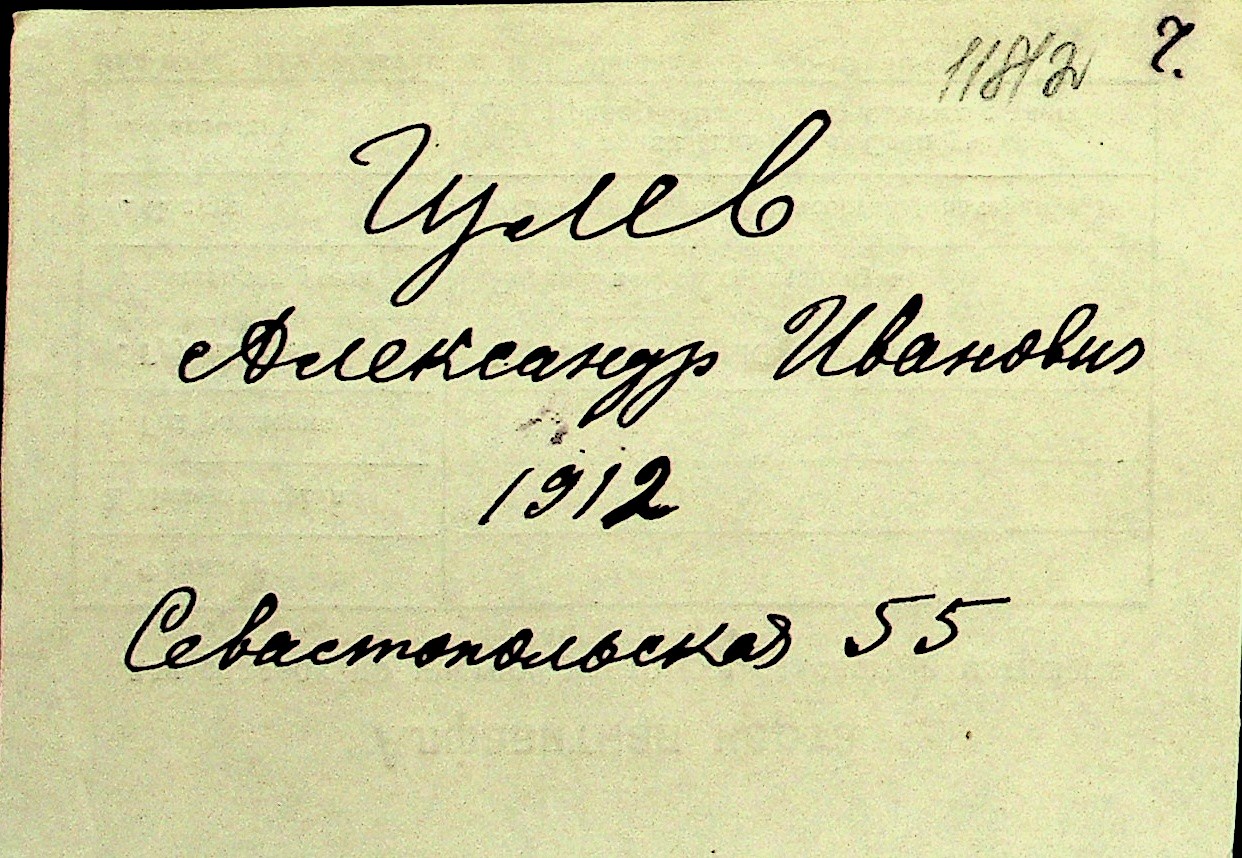 Гулев
Александр Иванович
1912
Севастопольская 55